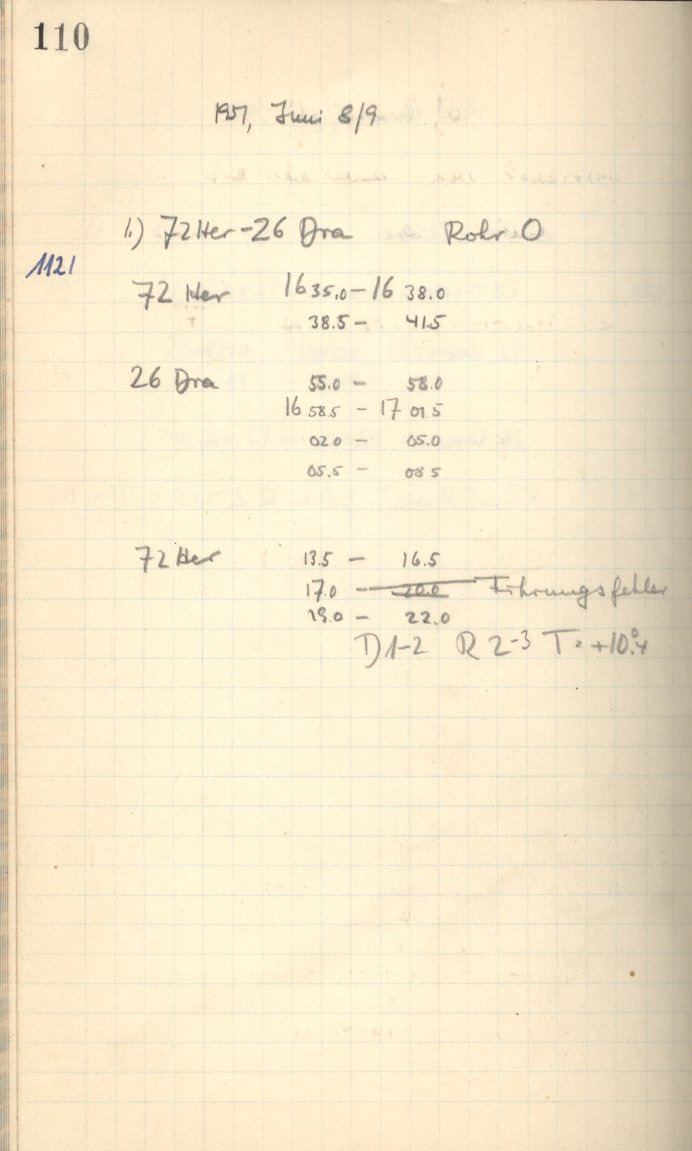 110
1951, Juni 8/9
1.) 72 Her - 26 Dra Rohr O
1121
72 Her 16 35.0 - 16 38.0
38.5 - 41.5
26 Dra 55.0 - 58.0
16 58.5 - 17 01.5
02.0 - 05.0
05.5 - 08.5
72 Her 13.5 - 16.5
17.0 - 20.0 Führungsfehler
19.0 - 22.0
D 1-2 R 2-3 T = +10.°4